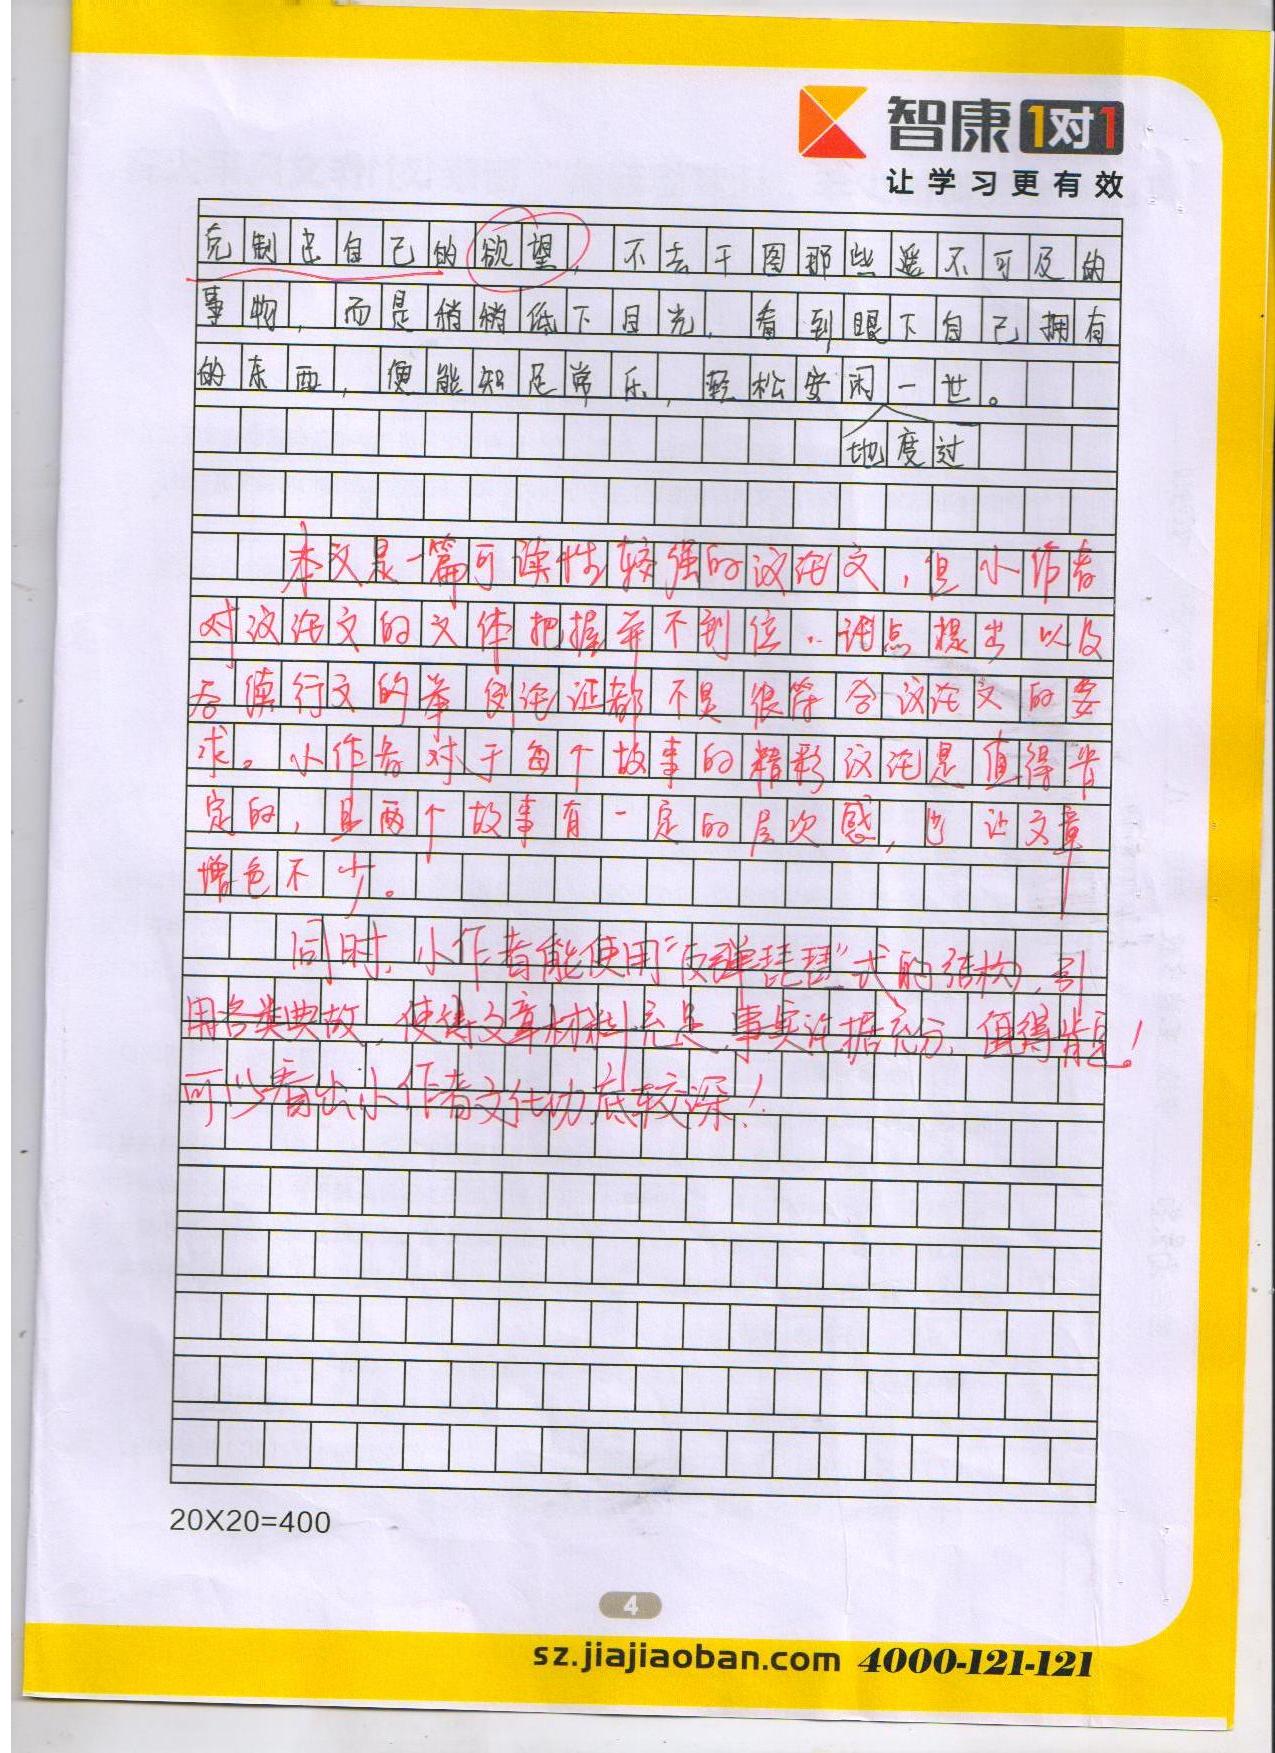 智康1对1
让学习更有效
克制住自己的欲望，不去干图那些遥不可及的
事物，而是稍稍低下目光，看到眼下自己拥有
的东西，便能知足常乐，轻松安闲一世。
地度过
本文是一篇可读性较强的议论文，但小作者
对议论文的文体把握并不到位..论点提出以及
后续行文的举例论证都不是很符合议论文的要
求。小作者对于每个故事的精彩议论是值得肯
定的，且两个故事有一定的层次感，也让文章
增色不少。
同时，小作者能使用“反弹琵琶”式的结构，引
用各类典故，使得文章材料充足，事实论据充分，值得肯定！
可以看出小作者文化功底较深！
20X20=400
4
sz.jiajiaoban.com 4000-121-121